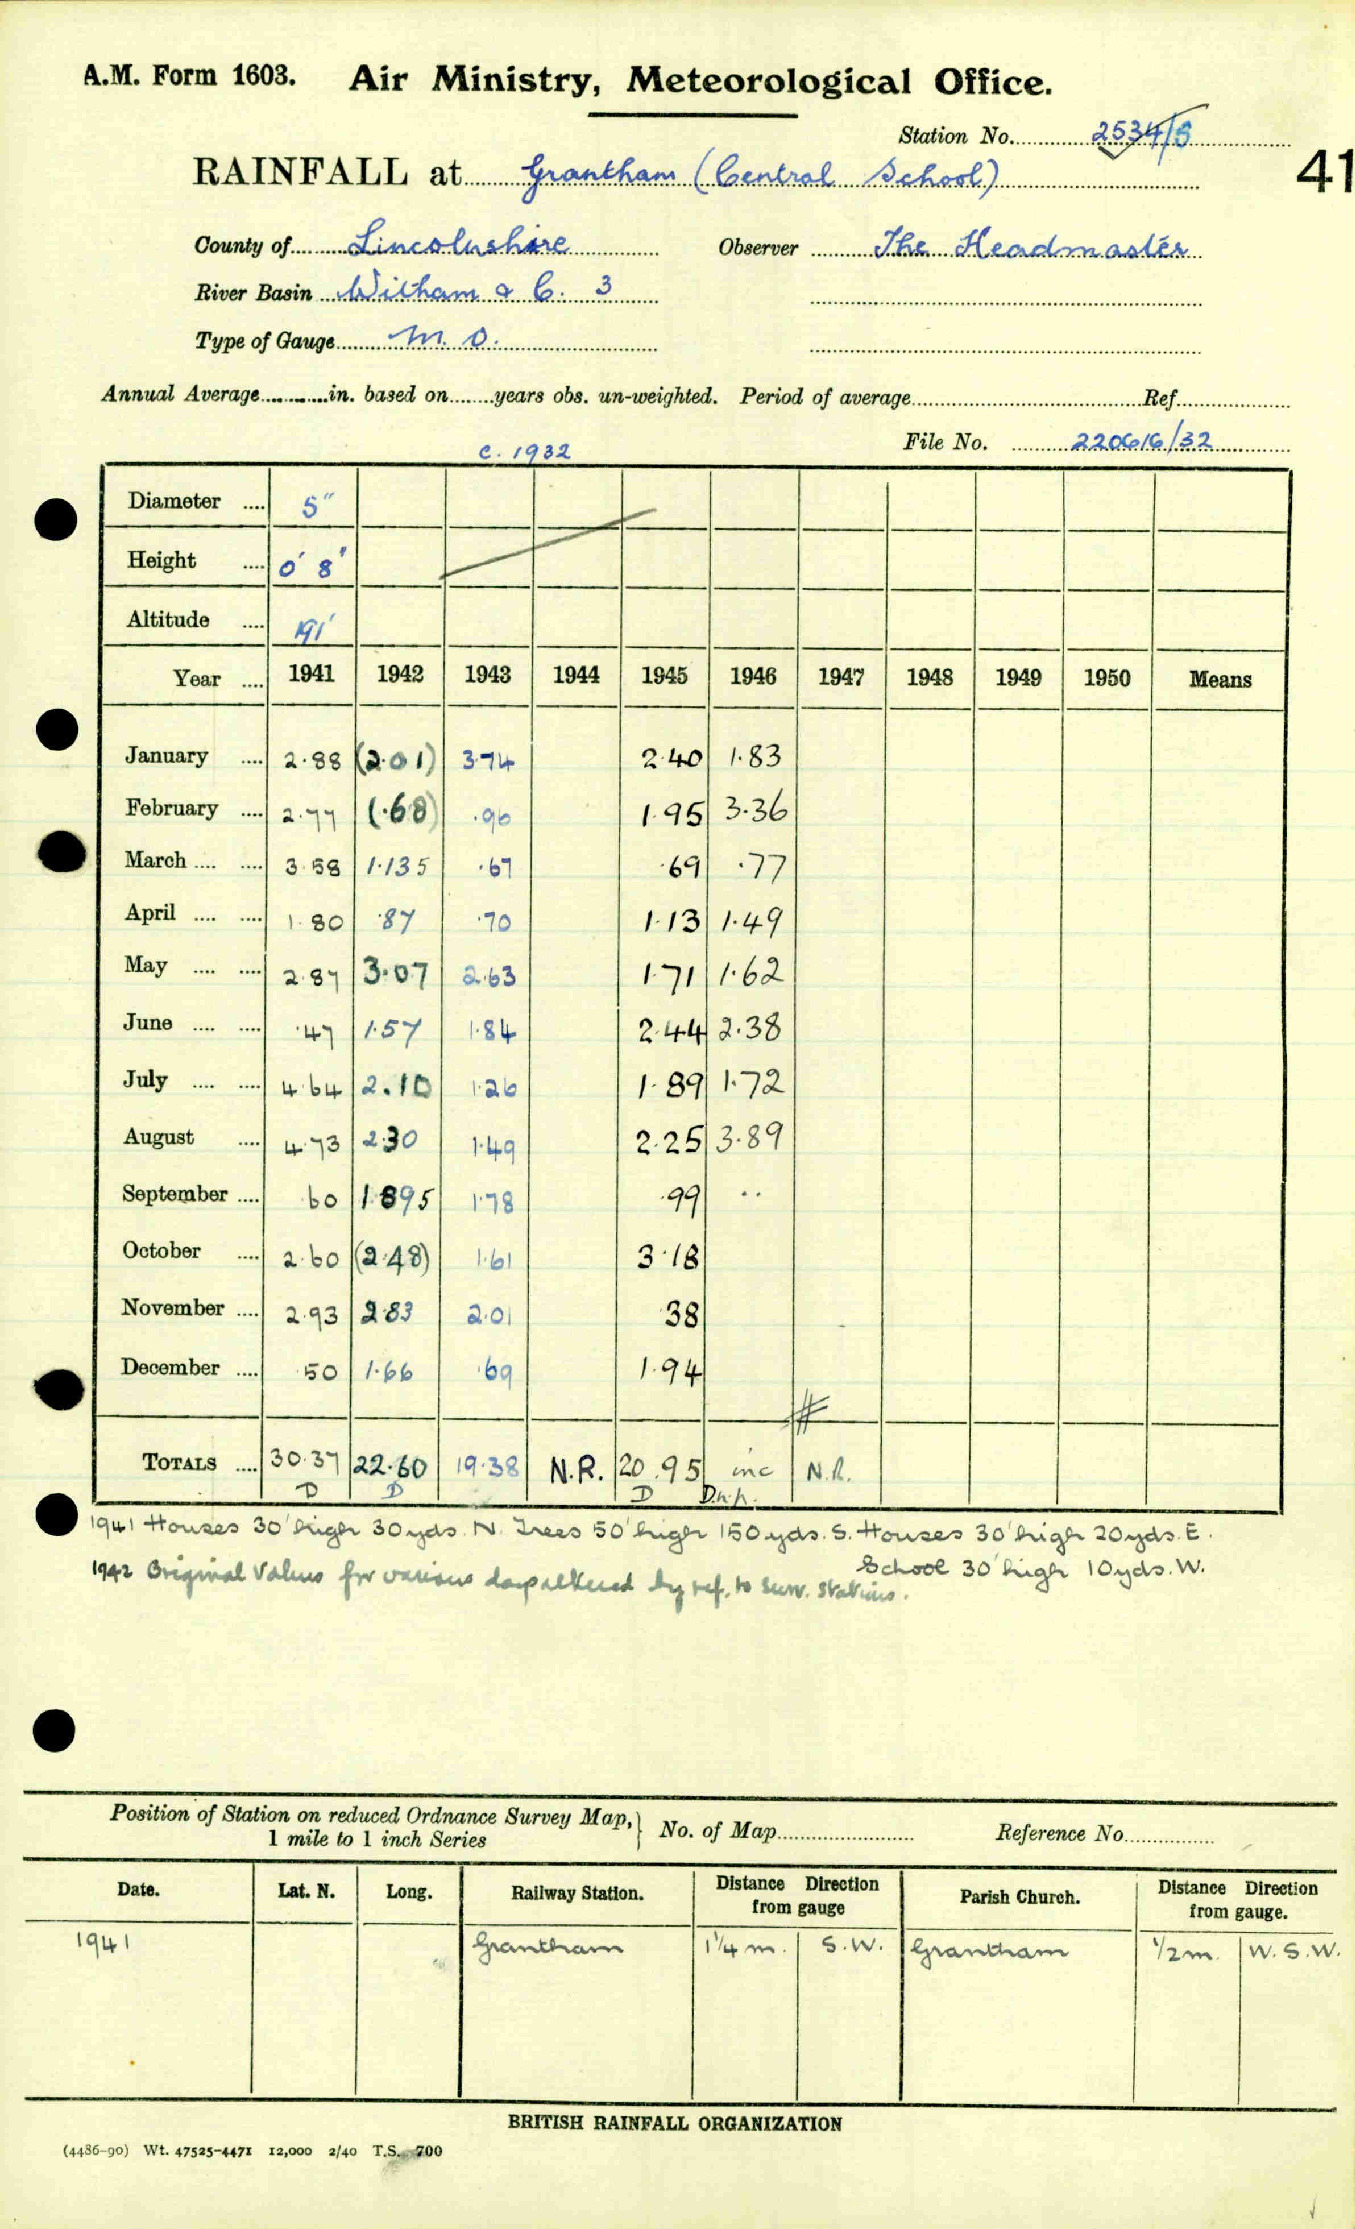 A.M. Form 1603. Air Ministry, Meteorological Office.
Station No. 2534/5
41
RAINFALL at Grantham (Central School)
County of Lincolnshire Observer The Headmaster
River Basin Witham & C. 3
Type of Gauge M. O.
Annual Average in. based on years obs. un-weighted. Period of average Ref.
File No. 220616/32
c. 1932
Diameter 5"
Height 0' 8"
Altitude 191'
Year 1941 1942 1943 1944 1945 1946 1947 1948 1949 1950 Means
January 2.88 (2.01) 3.74 2.40 1.83
February 2.77 (.68) .96 1.95 3.36
March 3.58 1.135 .67 .69 .77
April 1.80 .87 .70 1.13 1.49
May 2.87 3.07 2.63 1.71 1.62
June .47 1.57 1.84 2.44 2.38
July 4.64 2.10 1.26 1.89 1.72
August 4.73 2.30 1.49 2.25 3.89
September .60 1.895 1.78 .99 ..
October 2.60 (2.48) 1.61 3.18
November 2.93 2.83 2.01 .38
December .50 1.66 .69 1.94
TOTALS 30.37 22.60 19.38 N.R. 20.95 inc N.R.
D D D D.n.p.
1941 Houses 30' high 30yds. N. Trees 50' high 150yds. S. Houses 30' high 20yds. E.
School 30' high 10yds. W.
1942 Original values for various days altered by ref. to surr. stations.
Position of Station on reduced Ordnance Survey Map, 1 mile to 1 inch Series } No. of Map Reference No.
Date. Lat. N. Long. Railway Station. Distance from gauge Direction Parish Church. Distance Direction from gauge.
1941 Grantham 1¼ m. S.W. Grantham ½ m. W.S.W.
BRITISH RAINFALL ORGANIZATION
(4486-90) Wt. 47525-4471 12,000 2/40 T.S. 700